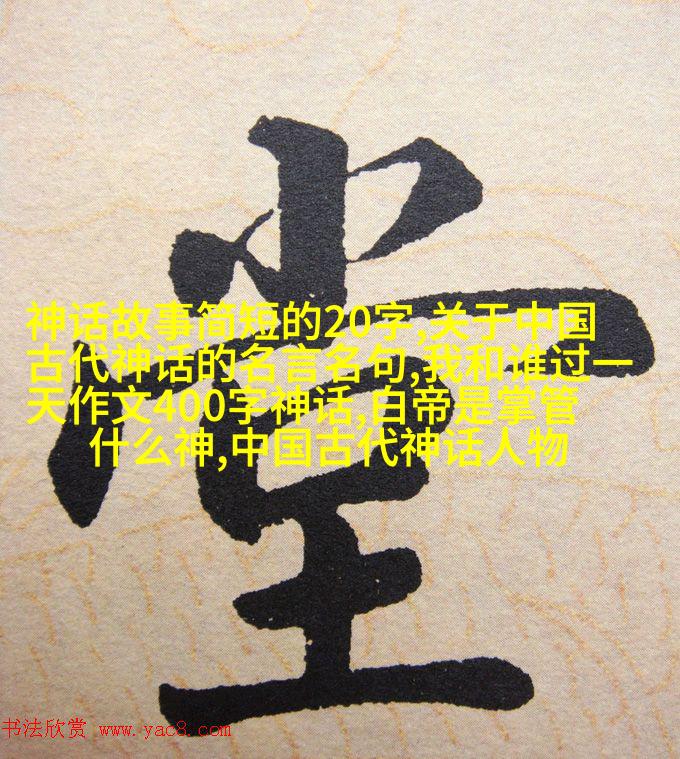 堂
神话故事简短的20字,关于中国
古代神话的名言名句,我和谁过一
天作文400字神话,白帝是掌管
什么神,中国古代神话人物
书法欣赏 www.yac8.com